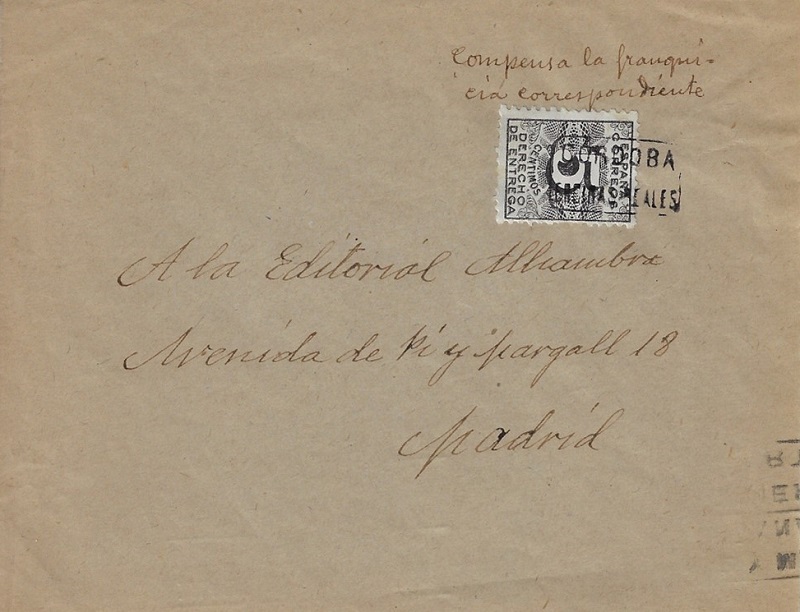 Compensa la franqui-
cia correspondiente
ESPAÑA
CORREOS
5
CENTIMOS
DERECHO
DE ENTREGA
CORDOBA
A la Editorial Alhambra
Avenida de Pi y Margall 18
Madrid